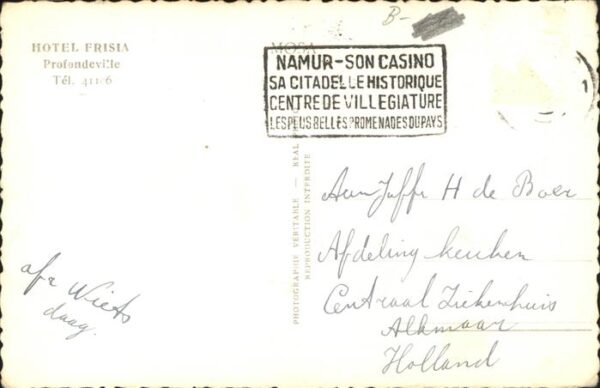 HOTEL FRISIA
Profondeville
Tél. 411
B-
MOSA
NAMUR-SON CASINO
SA CITADELLE HISTORIQUE
CENTRE DE VILLEGIATURE
LES PLUS BELLES PROMENADES DU PAYS
PHOTOGRAPHIE VERITABLE — REAL
REPRODUCTION INTERDITE
Aan Juffr H de Boer
Afdeling keuken
Centraal Ziekenhuis
Alkmaar
Holland
Wiets
daag.